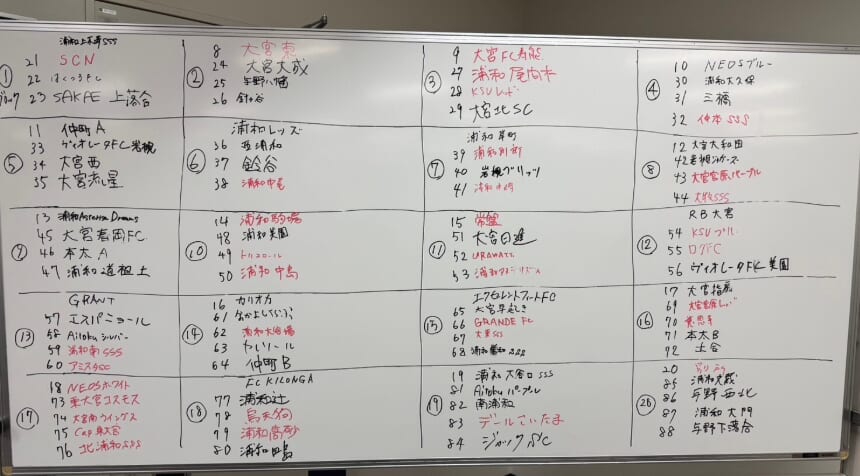 浦和上木崎SSS
21 SCN
① 22 はくつるFC
ブロック 23 SAKAE 上落合
8 大宮東
24 大宮大成
② 25 与野八幡
26 針ヶ谷
9 大宮FC寿能
27 浦和尾間木
③ 28 KSVレッド
29 大宮北SC
10 NEOSブルー
30 浦和大久保
④ 31 三橋
32 仲本SSS
11 仲町A
33 ヴィオレータFC岩槻
⑤ 34 大宮西
35 大宮流星
浦和レッズ
36 西浦和
⑥ 37 鈴谷
38 浦和中尾
浦和岸町
39 浦和別所
⑦ 40 岩槻グリッツ
41
12 大宮大和田
42
⑧ 43 大宮宮原パープル
44 大牧SSS
13 浦和Aztessa Dreams
45 大宮春岡FC
⑨ 46 本太A
47 浦和道祖土
14 浦和駒場
48 浦和美園
⑩ 49 トリコロール
50 浦和中島
15 常盤
51 大宮日進
⑪ 52 URAWATS
53
RB大宮
54 KSVブルー
⑫ 55 ログFC
56 ヴィオレータFC美園
GRANT
57 エスパニョール
⑬ 58 Aitokuシルバー
59 浦和南SSS
60 アミスタSC
16 カリオカ
61
⑭ 62 浦和大谷場
63
64 仲町B
エクセレントフィートFC
65 大宮早起き
⑮ 66 GRANDE FC
67 大東SSS
68
17 大宮指扇
69 大宮宮原レッド
⑯ 70 慈恩寺
71 本太B
72 土合
18 NEOSホワイト
73 東大宮コスモス
⑰ 74 大宮南ウイングス
75 Cap東大宮
76 北浦和SSS
FC KILONGA
77 浦和辻
⑱ 78
79 浦和高砂
80 浦和田島
19 浦和大谷口SSS
81 Aitokuパープル
⑲ 82 南浦和
83 デールさいたま
84 ジョックSC
20
85
⑳ 86 与野西北
87 浦和大門
88 与野下落合